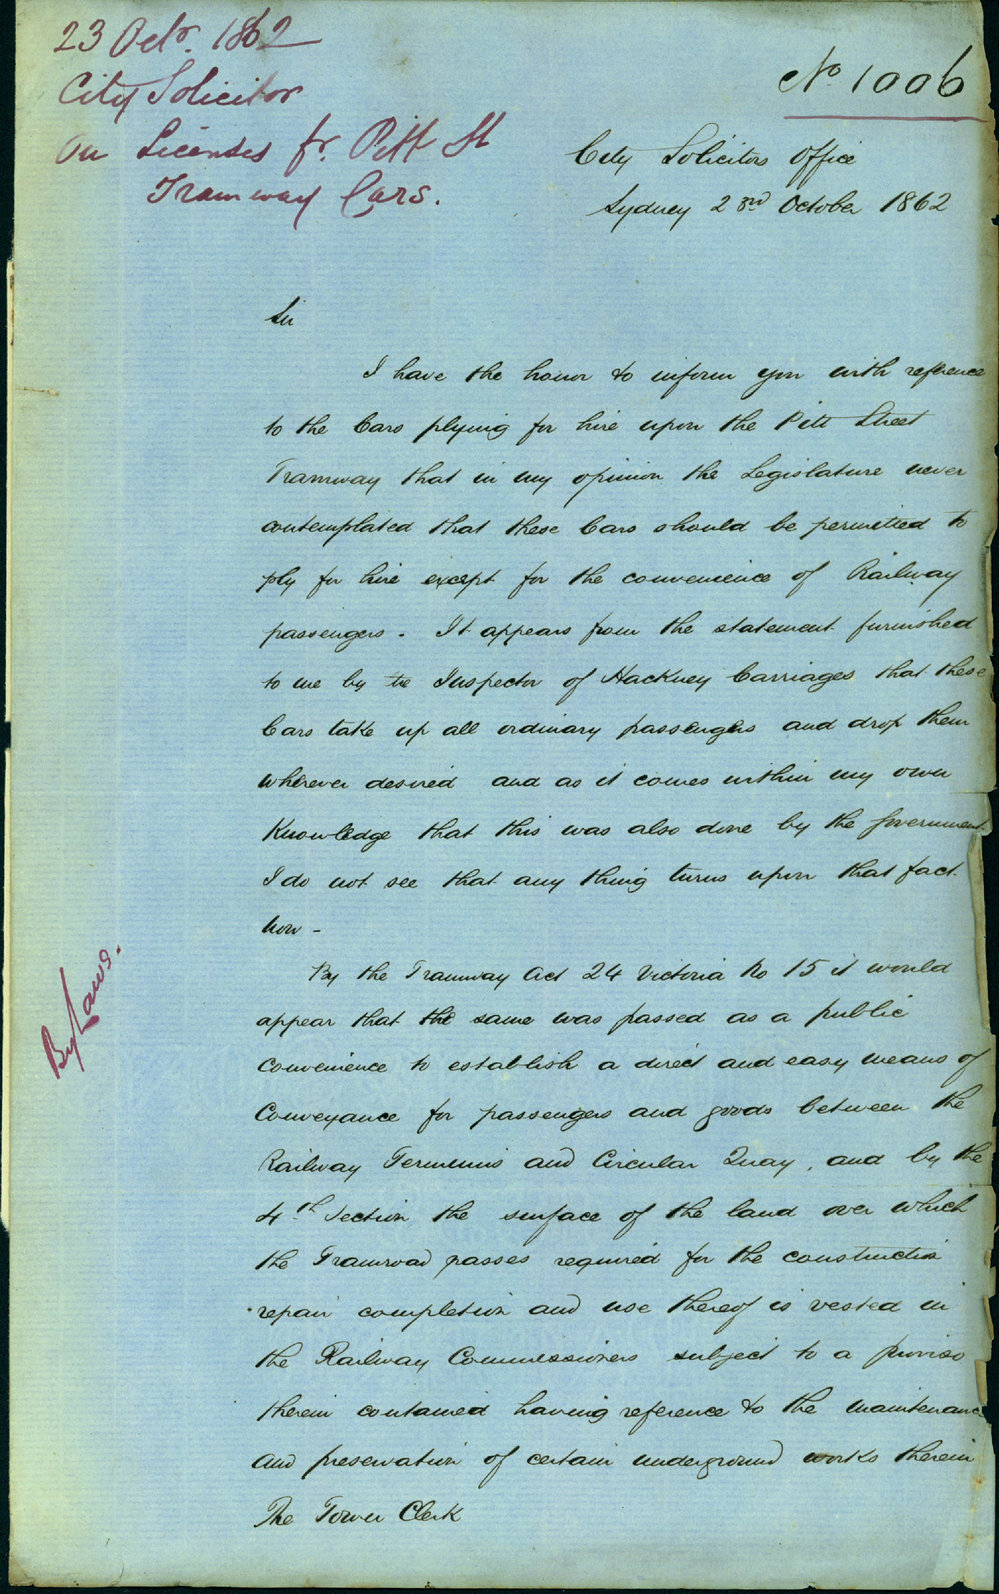 23 Octr. 1862
City Solicitor
On Licenses fr. Pitt St
Tramway Cars.
No 1006
City Solicitors Office
Sydney 23rd October 1862
Sir
I have the honor to inform you with reference
to the Cars plying for hire upon the Pitt Street
Tramway that in my opinion the Legislature never
contemplated that these Cars should be permitted to
ply for hire except for the convenience of Railway
passengers. It appears from the statement furnished
to me by the Inspector of Hackney Carriages that these
Cars take up all ordinary passengers and drop them
wherever desired and as it comes within my own
Knowledge that this was also done by the Government
I do not see that any thing turns upon that fact
now -
By Laws.
By the Tramway Act 24 Victoria No 15 it would
appear that the same was passed as a public
convenience to establish a direct and easy means of
Conveyance for passengers and goods between the
Railway Terminus and Circular Quay, and by the
4th Section the surface of the land over which
the Tramroad passes required for the construction
repair completion and use thereof is vested in
the Railway Commissioners subject to a proviso
therein contained having reference to the maintenance
and preservation of certain underground works therein
The Town Clerk